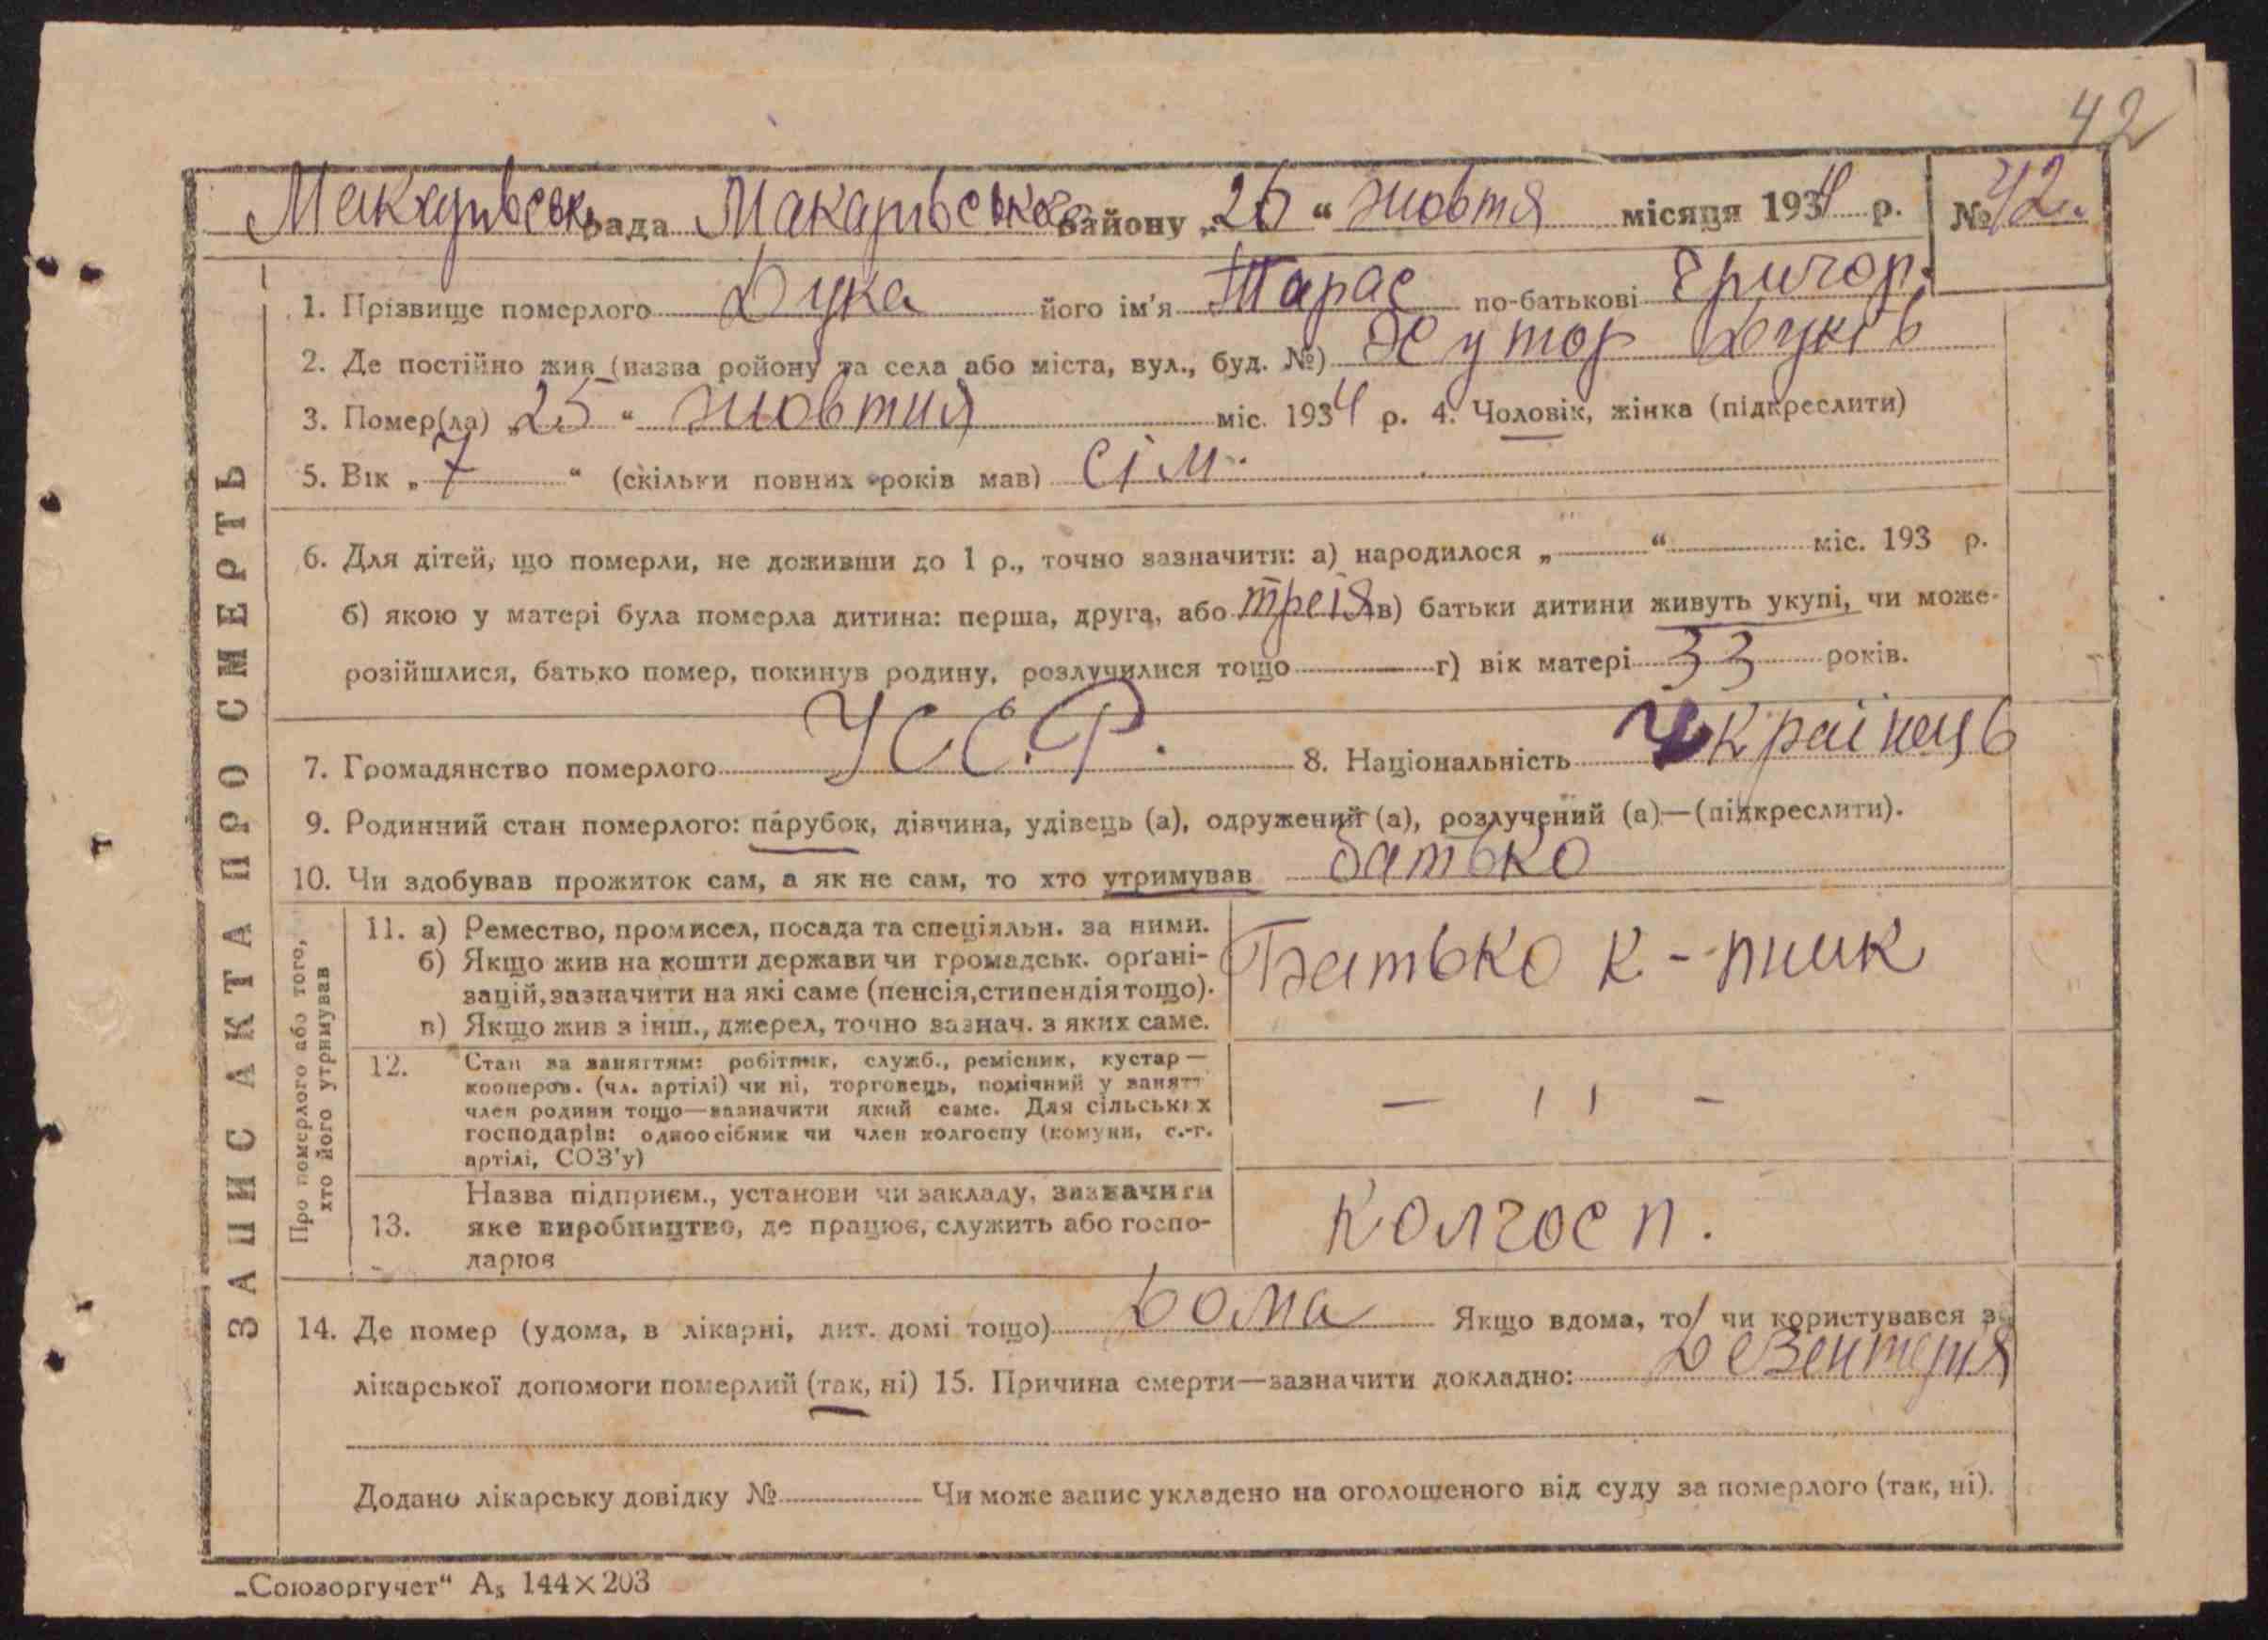 42
Макарівськ рада Макарівського району „26“ жовтя місяця 1934 р. № 42.
ЗАПИС АКТА ПРО СМЕРТЬ
1. Прізвище померлого Дука його ім'я Тарас по-батькові Григор.
2. Де постійно жив (назва ройону та села або міста, вул., буд. №) Хутор Дуків
3. Помер(ла) „25“ жовтня міс. 1934 р. 4. Чоловік, жінка (підкреслити)
5. Вік „7“ (скільки повних років мав) сім.
6. Для дітей, що померли, не доживши до 1 р., точно зазначити: а) народилося „ “ міс. 193 р.
б) якою у матері була померла дитина: перша, друга, або треія в) батьки дитини живуть укупі, чи може-
розійшлися, батько помер, покинув родину, розлучилися тощо г) вік матері 33 років.
7. Громадянство померлого УССР. 8. Національність Українець
9. Родинний стан померлого: парубок, дівчина, удівець (а), одружений (а), розлучений (а)—(підкреслити).
10. Чи здобував прожиток сам, а як не сам, то хто утримував батько
Про померлого або того,
хто його утримував
11. а) Ремество, промисел, посада та спеціяльн. за ними.
б) Якщо жив на кошти держави чи громадськ. орґані-
зацій, зазначити на які саме (пенсія, стипендія тощо).
в) Якщо жив з інш., джерел, точно зазнач. з яких саме.
Батько к-пник
12. Стан за заняттям: робітник, служб., ремісник, кустар—
кооперов. (чл. артілі) чи ні, торговець, помічний у занятт
член родини тощо—зазначити який саме. Для сільських
господарів: одноосібник чи член колгоспу (комуни, с.-г.
артілі, СОЗ'у)
— 〃 —
13. Назва підприєм., установи чи закладу, зазначити
яке виробництво, де працює, служить або госпо-
дарює
Колгосп.
14. Де помер (удома, в лікарні, дит. домі тощо) Дома Якщо вдома, то чи користувався з
лікарської допомоги померлий (так, ні) 15. Причина смерти—зазначити докладно: Дезентерія
Додано лікарську довідку № Чи може запис укладено на оголошеного від суду за померлого (так, ні).
„Союзоргучет“ А₅ 144×203